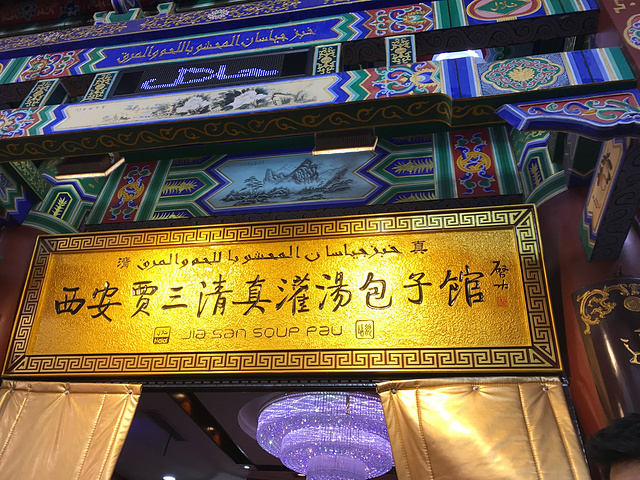 خبز جياسان المحشو باللحم والمرق
حلال
清 خبز جياسان المحشو باللحم والمرق 真
西安贾三清真灌汤包子馆
حلال Halal JIA SAN SOUP PAU